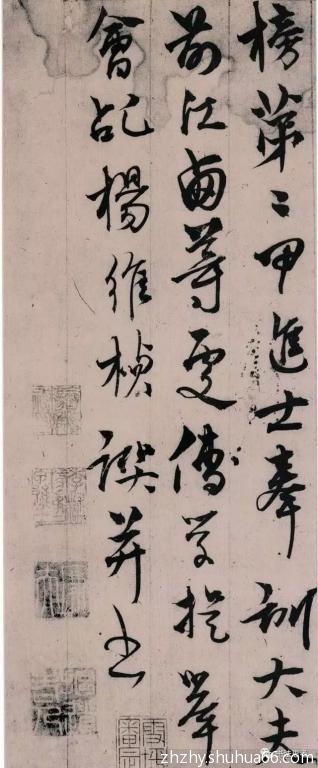 榜第二甲進士奉訓大夫
前江西等處儒學提舉
會稽楊維楨譔并書
zhzhy.shuhua66.com